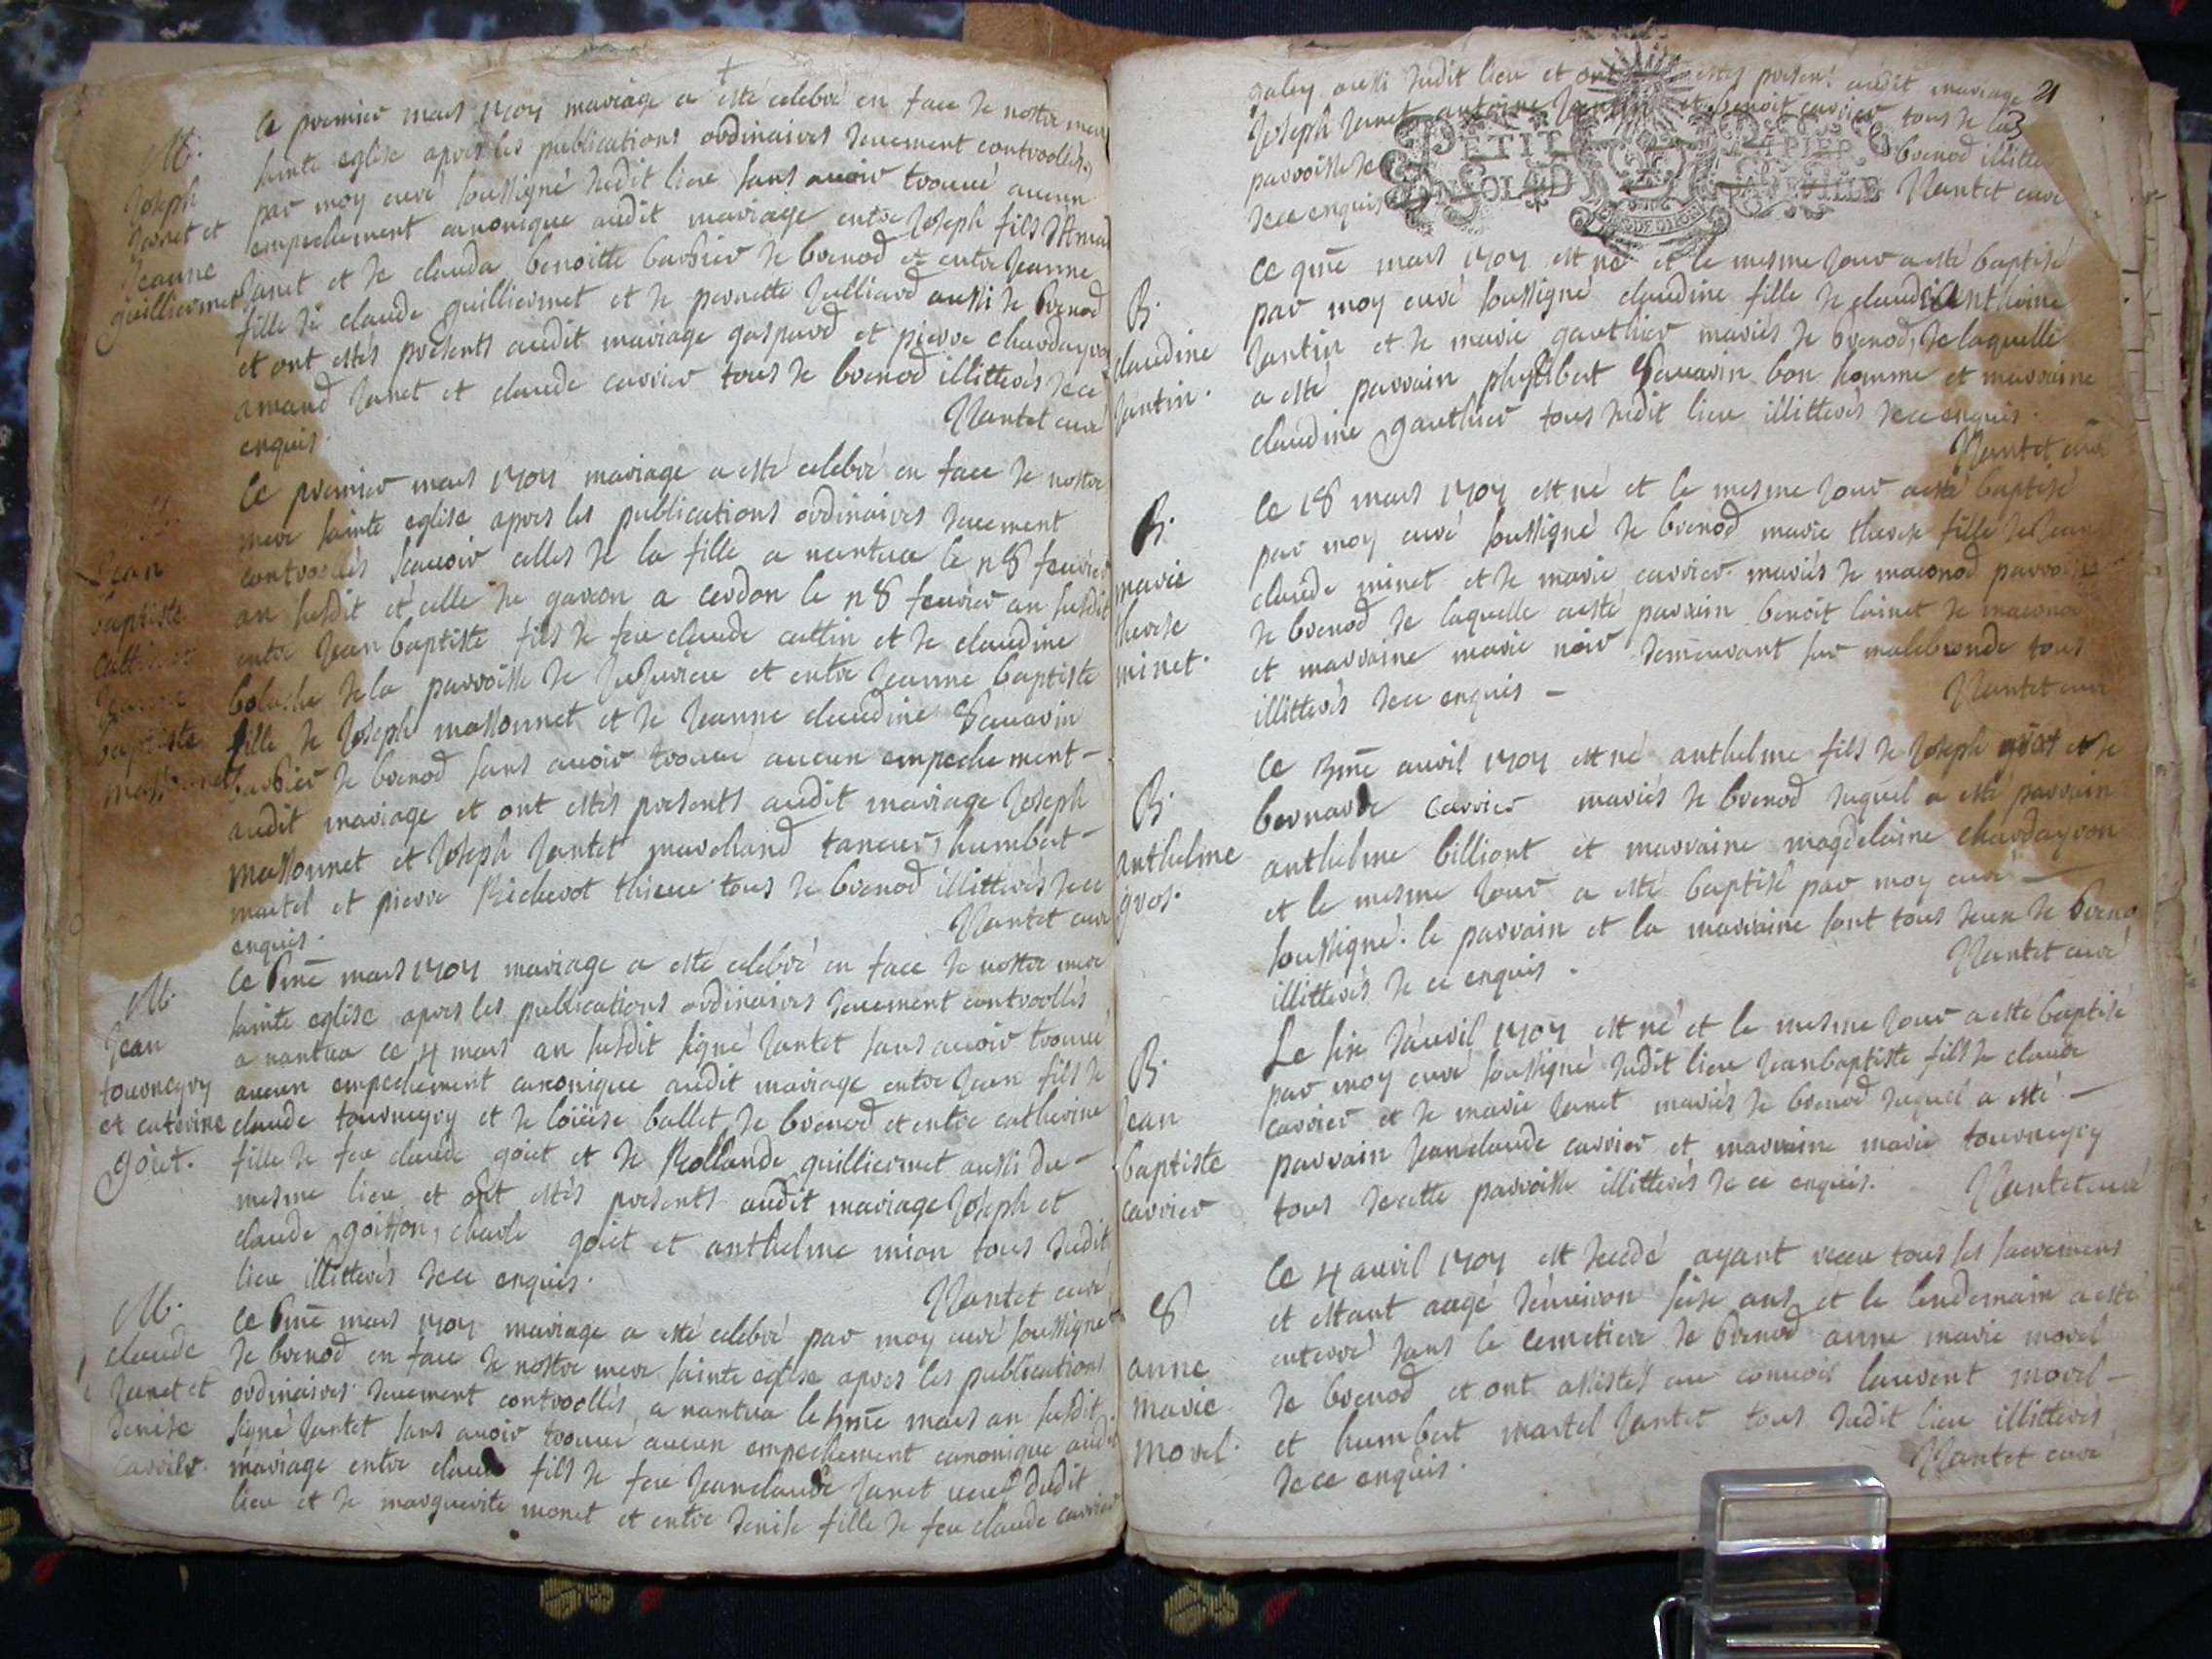 +
M.
Joseph
Janet et
Jeanne
guilliermet
Ce premier mars 1707 mariage a esté celebré en face de nostre mere
sainte eglise apres les publications ordinaires deuement controollés
par moy curé soussigné dudit lieu sans avoir trouué aucun
empechement canonique audit mariage entre Joseph fils d'Amad
Janet et de clauda benoitte barbier de brenod et entre Jeanne
fille de claude guilliermet et de pernette Julliard aussi de brenod
et ont estés presents audit mariage gaspard et pierre chardayron
amand Janet et claude carrier tous de brenod illitterés de ce
enquis. Nantet curé
Jean
baptiste
cattin et
Jeanne
baptiste
massonnet
Ce premier mars 1707 mariage a esté celebré en face de nostre
mere sainte eglise apres les publications ordinaires deuement
controollés scauoir celles de la fille a nantua le 28 feurier
an susdit et celle de garcon a cerdon le 28 feurier an susdit
entre Jean baptiste fils de feu claude cattin et de claudine
bolache de la parroisse de Jujurieu et entre Jeanne baptiste
fille de Joseph massonnet et de Jeanne claudine Sauarin
barbier de brenod sans auoir trouué aucun empechement –
audit mariage et ont estés presents audit mariage Joseph
massonnet et Joseph Jantet marchand taneur, humbert –
martel et pierre Richerot tous de brenod illitterés de ce
enquis. Nantet curé
M.
Jean
tournegry
et caterine
goiet.
Ce 6me mars 1707 mariage a esté celebré en face de nostre mere
sainte eglise apres les publications ordinaires deuement controollés
a nantua ce 4 mars an susdit signé Jantet sans auoir trouué
aucun empechement canonique audit mariage entre Jean fils de
claude tournegry et de loüise ballet de brenod et entre catherine
fille de feu claude goiet et de Rollande guilliermet aussi du –
mesme lieu et ont estés presents audit mariage Joseph et
claude goiffon, charle goiet et anthelme mion tous dudit
lieu illitterés de ce enquis. Nantet curé
M.
claude
Janet et
denise
carrier.
Ce 6me mars 1707 mariage a esté celebré par moy curé soussigné
de brenod en face de nostre mere sainte eglise apres les publications
ordinaires deuement controollés a nantua le 5me mars an susdit
signé Jantet sans auoir trouué aucun empechement canonique audit
mariage entre claude fils de feu Jeanclaude Janet ueuf dudit
lieu et de marguerite monet et entre denise fille de feu claude carrier
21
3
galey aussi dudit lieu et ont estés present audit mariage
Joseph Janet antoine Jantin et benoit carrier tous de la
parroisse de brenod illitterés
de ce enquis Nantet curé
PETIT PAPIER
GENERALITE
DE DIJON
B.
claudine
Jantin.
Ce 9me mars 1707 est né et le mesme jour a esté baptisé
par moy curé soussigné claudine fille de claude anthoine
Jantin et de marie gauthier mariés de brenod, de laquelle
a esté parrain phylibert Sauarin bon homme et marraine
claudine gauthier tous dudit lieu illitterés de ce enquis.
Nantet curé
B.
marie
therese
minet.
Ce 18 mars 1707 est né et le mesme jour a esté baptisé
par moy curé soussigné de brenod marie therese fille de Jean
claude minet et de marie carrier mariés de maconod parroisse
de brenod de laquelle a esté parrain benoit loinet de maconod
et marraine marie noir demeurant sur malebronde tous
illitterés de ce enquis – Nantet curé
B.
anthelme
gros.
Ce 3me auril 1707 est né anthelme fils de Joseph et de
bernarde carrier mariés de brenod duquel a esté parrain
anthelme billiont et marraine magdelaine chardayron
et le mesme jour a esté baptisé par moy curé –
soussigné. le parrain et la marraine sont tous deux de brenod
illitterés de ce enquis. Nantet curé
B.
Jean
baptiste
carrier
Le six d'auril 1707 est né et le mesme jour a esté baptisé
par moy curé soussigné dudit lieu Jeanbaptiste fils de claude
carrier et de marie Janet mariés de brenod duquel a esté –
parrain Jeanclaude carrier et marraine marie tournegry
tous de cette parroisse illitterés de ce enquis. Nantet curé
S
anne
marie
morel.
Ce 4 auril 1707 est decedé ayant receu tous ses sacremens
et estant aagé d'enuiron seise ans et le lendemain a esté
enterré dans le cemetiere de brenod anne marie morel
de brenod et ont assistés au conuoi laurent morel –
et humbert martel Jantet tous dudit lieu illitterés
de ce enquis. Nantet curé